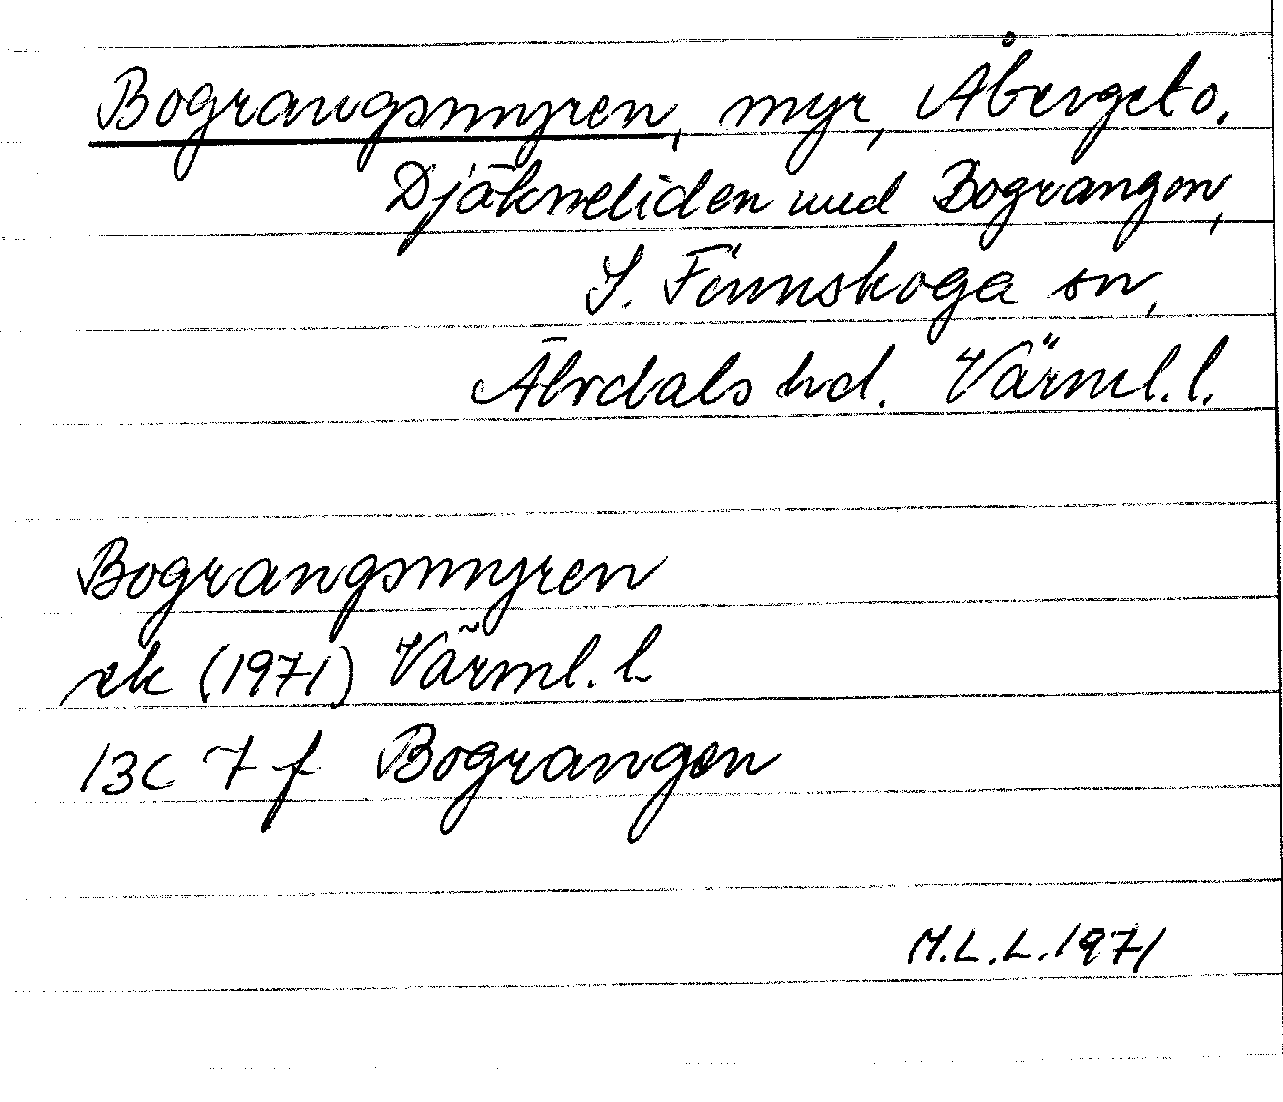 Bograngsmyren, myr, Åberget o.
Djäkneliden med Bograngen,
S. Finnskoga sn,
Älvdals hd. Värml. l.
Bograngsmyren
ek (1971) Värml. l.
13C 7f Bograngen
M.L.L. 1971